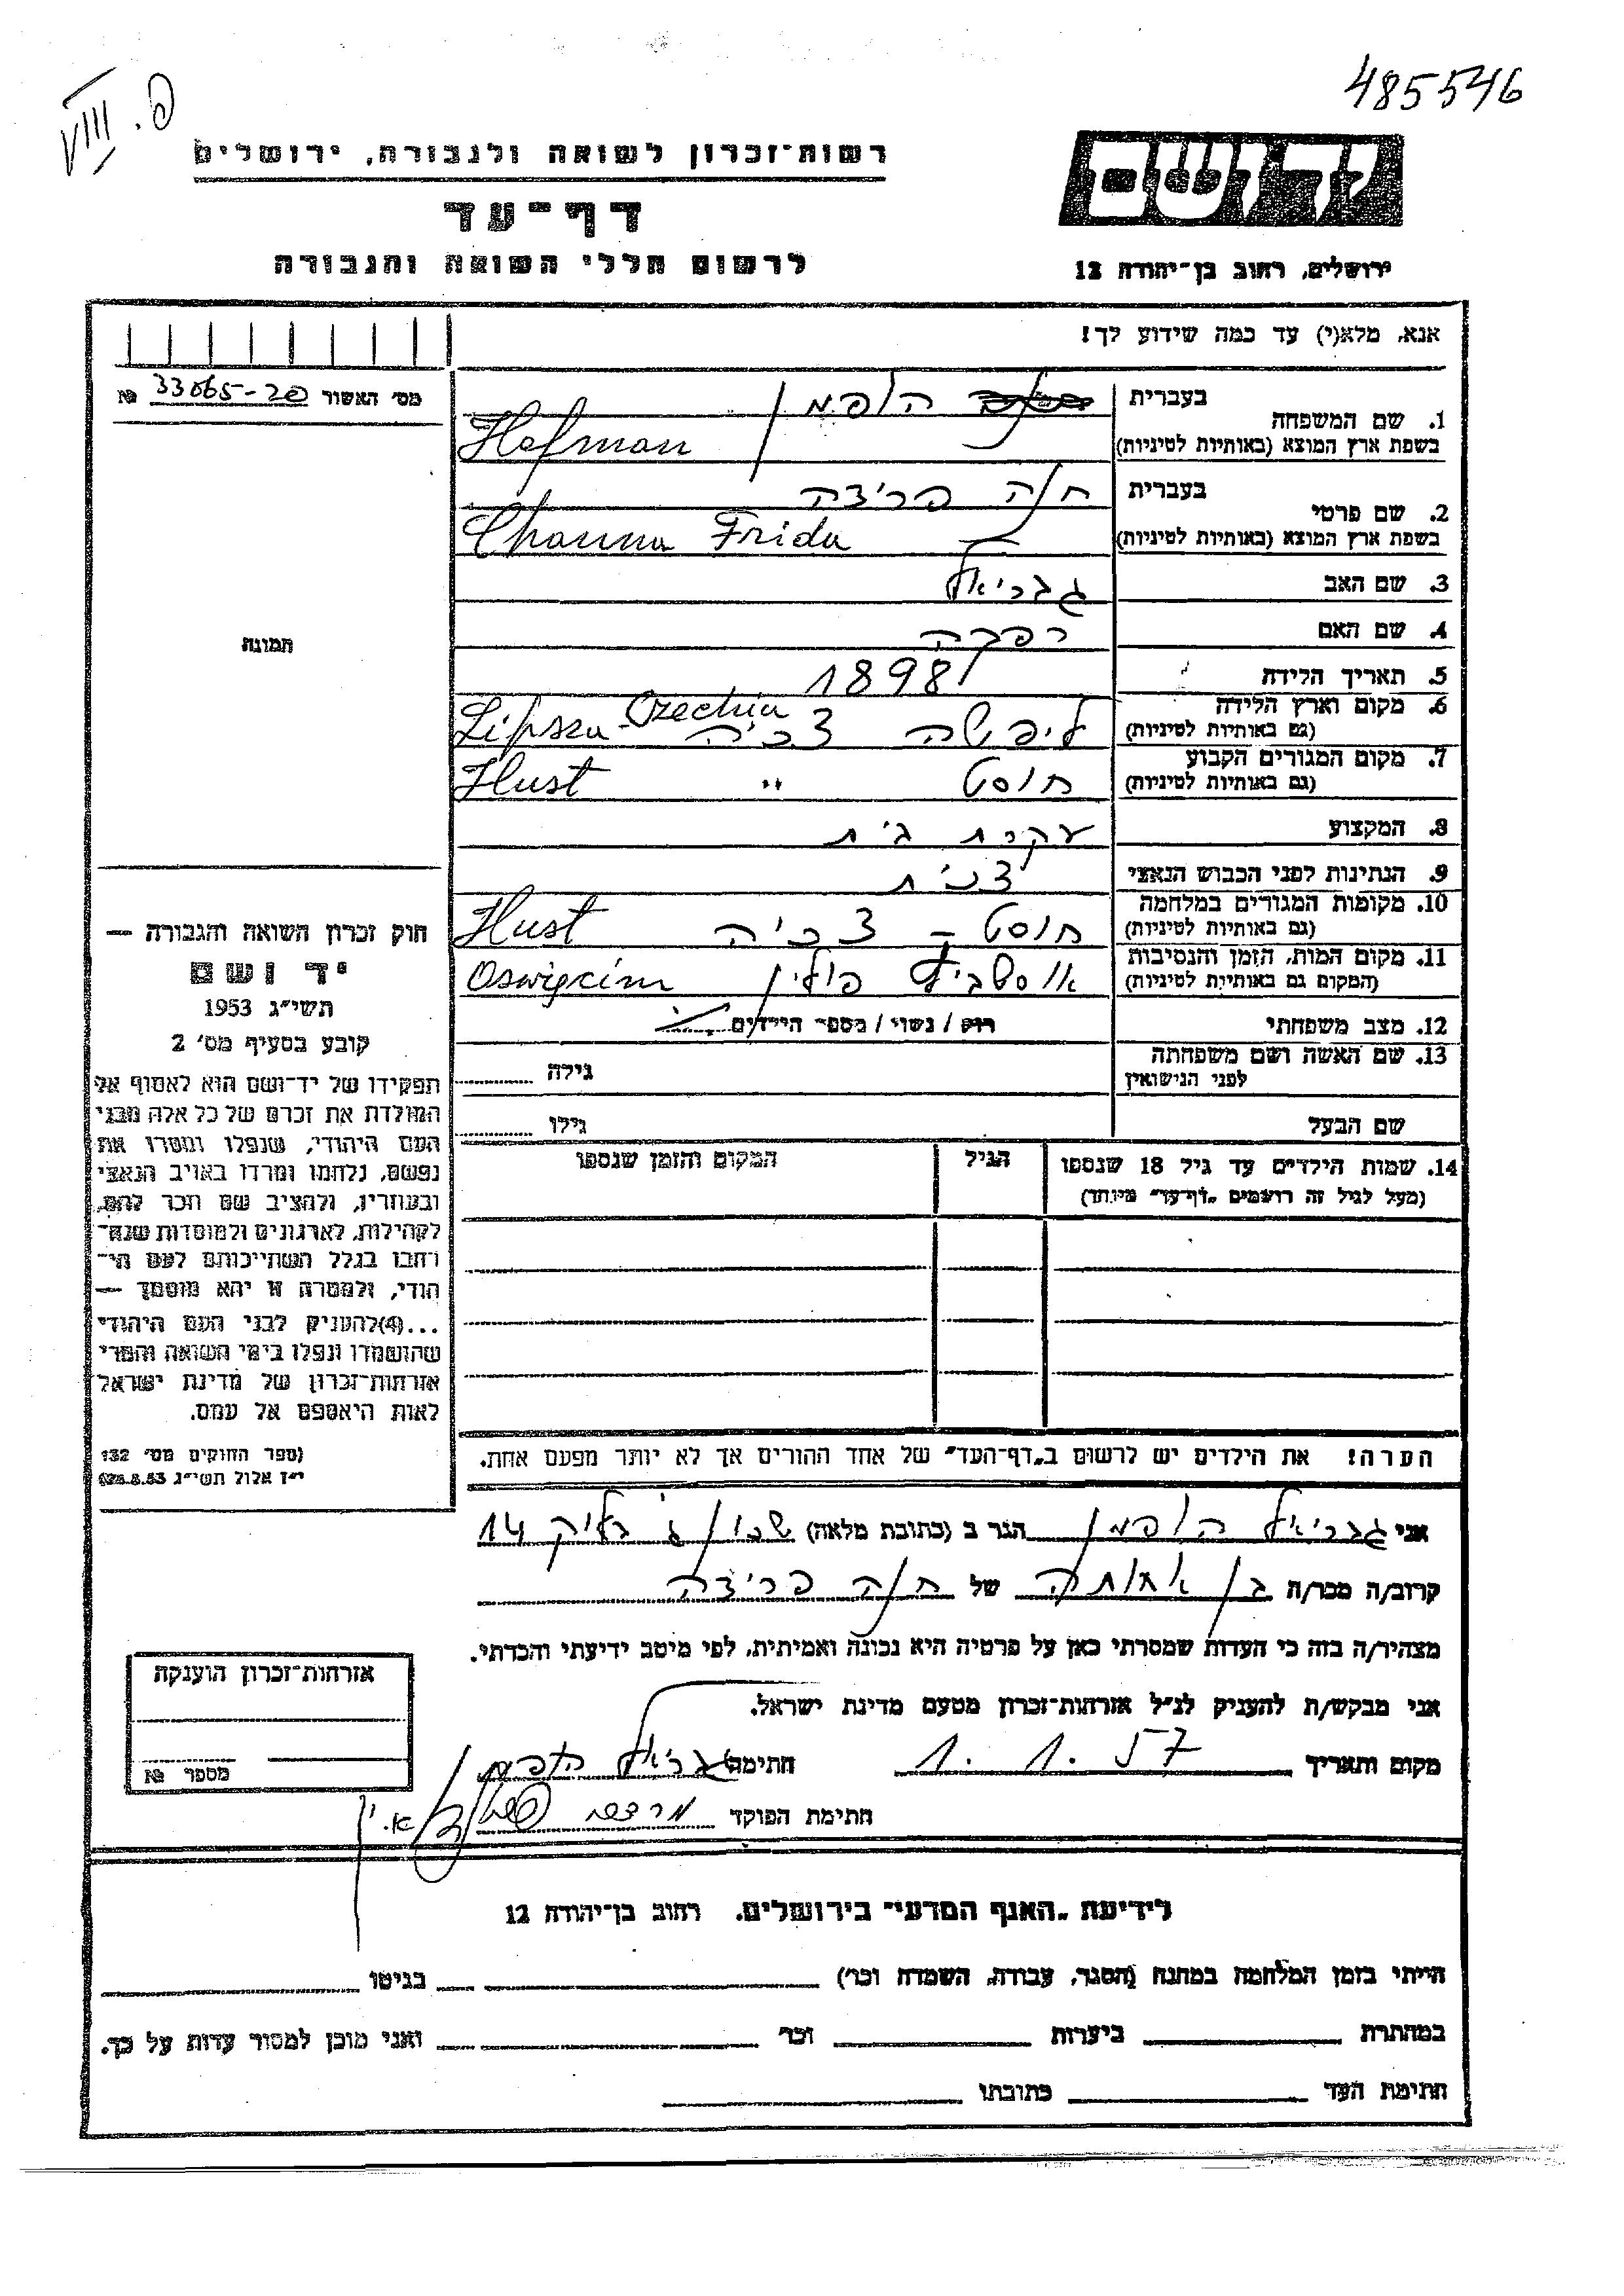 485546
VIII. פ
יד ושם
ירושלים, רחוב בן־יהודה 12
רשות־זכרון לשואה ולגבורה, ירושלים
דף־עד
לרשום חללי השואה והגבורה
אנא, מלא(י) עד כמה שידוע לך!
מס׳ האשור 33065-20 №
תמונה
1. שם המשפחה בעברית הופמן
בשפת ארץ המוצא (באותיות לטיניות) Hofman
2. שם פרטי בעברית חנה פרידה
בשפת ארץ המוצא (באותיות לטיניות) Channa Frida
3. שם האב גבריאל
4. שם האם רבקה
5. תאריך הלידה 1898
6. מקום וארץ הלידה ליפשה צ'כיה Lipsza - Czechia
(גם באותיות לטיניות)
7. מקום המגורים הקבוע חוסט " Hust
(גם באותיות לטיניות)
8. המקצוע עקרת בית
9. הנתינות לפני הכבוש הנאצי צ'כית
10. מקומות המגורים במלחמה חוסט - צ'כיה Hust
(גם באותיות לטיניות)
11. מקום המות, הזמן והנסיבות פולין Oswięcim
(המקום גם באותיות לטיניות)
12. מצב משפחתי רווק / נשוי / מספר הילדים
13. שם האשה ושם משפחתה לפני הנישואין גילה
שם הבעל גילו
14. שמות הילדים עד גיל 18 שנספו הגיל המקום והזמן שנספו
(מעל לגיל זה רושמים „דף־עד״ מיוחד)
הערה! את הילדים יש לרשום ב„דף־העד״ של אחד ההורים אך לא יותר מפעם אחת.
חוק זכרון השואה והגבורה —
יד ושם
תשי״ג 1953
קובע בסעיף מס׳ 2
תפקידו של יד־ושם הוא לאסוף אל
המולדת את זכרם של כל אלה מבני
העם היהודי, שנפלו ומסרו את
נפשם, נלחמו ומרדו באויב הנאצי
ובעוזריו, ולהציב שם וזכר להם,
לקהילות, לארגונים ולמוסדות שנח־
רבו בגלל השתייכותם לעם הי־
הודי, ולמטרה זו יהא מוסמך —
...(4) להעניק לבני העם היהודי
שהושמדו ונפלו בימי השואה והמרי
אזרחות־זכרון של מדינת ישראל
לאות היאספם אל עמם.
(ספר החוקים מס׳ 132
י״ז אלול תשי״ג 28.8.53)
אני גבריאל הופמן הגר ב (כתובת מלאה) שכון ג' בלוק 14
קרוב/ה מכר/ה בן אחותה של חנה פרידה
מצהיר/ה בזה כי העדות שמסרתי כאן על פרטיה היא נכונה ואמיתית, לפי מיטב ידיעתי והכרתי.
אני מבקש/ת להעניק לנ״ל אזרחות־זכרון מטעם מדינת ישראל.
מקום ותאריך 1. 1. 57 חתימה גבריאל הופמן
חתימת הפוקד
אזרחות־זכרון הוענקה
מספר №
לידיעת „האגף המדעי״ בירושלים. רחוב בן־יהודה 12
הייתי בזמן המלחמה במחנה (הסגר, עבודה, השמדה וכו׳) בגיטו
במחתרת ביערות וכו׳ ואני מוכן למסור עדות על כך.
חתימת העד כתובתו